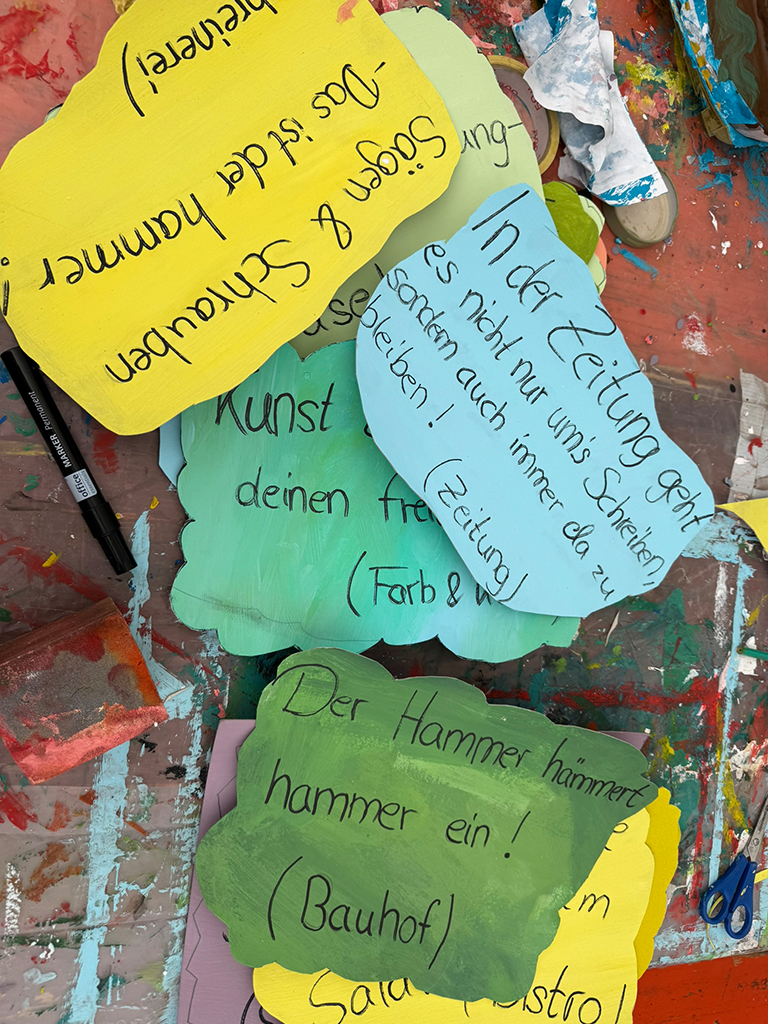 Sägen & Schrauben
-Das ist der hammer!
hreinerei)
ung-
In der Zeitung geht
es nicht nur um's Schreiben,
sondern auch immer da zu
bleiben!
(Zeitung)
Kunst
deinen
(Farb &
office
MARKER Permanent
Der Hammer hämmert
hammer ein!
(Bauhof)